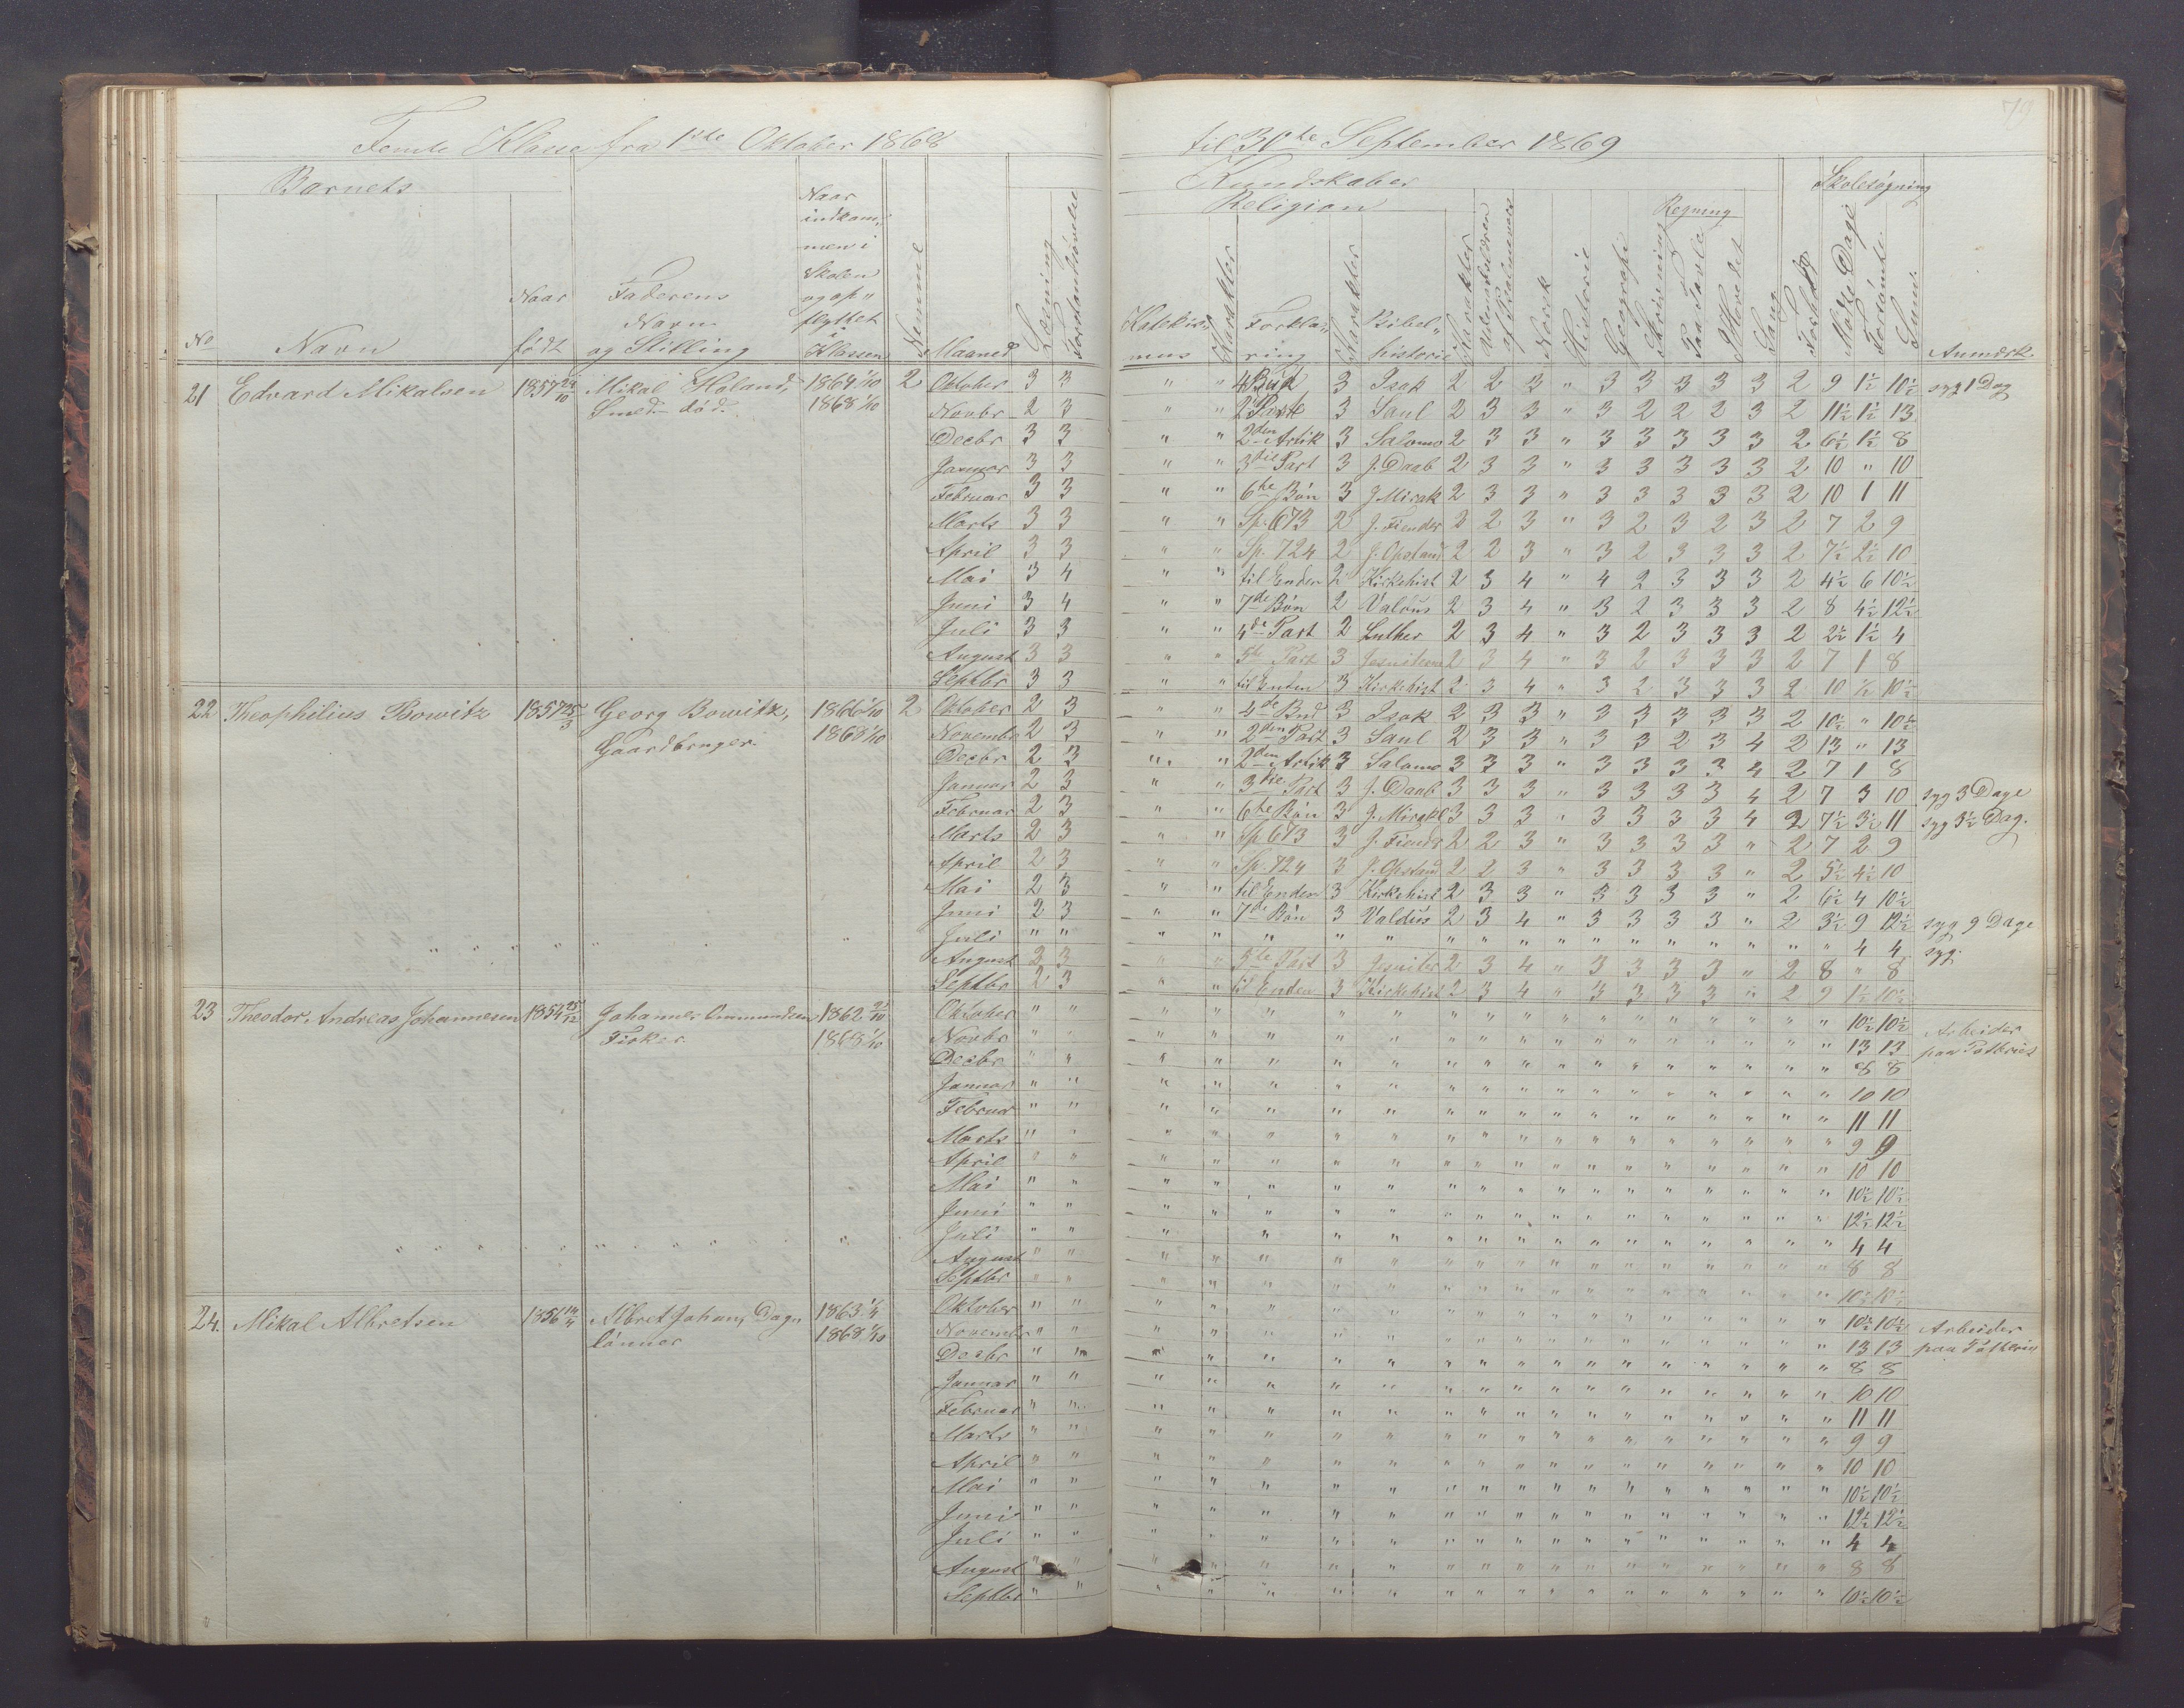 79
Femte Klasse fra 1ste Oktober 1868 til 30te September 1869
Barnets
Kundskaber
Skolesøgning
Religion
Regning
No
Navn
Naar født
Faderens Navn og Stilling
Naar indkommen i Skolen og opflyttet i Klassen
Nemme
Maaned
Læsning
Forstandsøvelse
Katekismus
Karakter
Forklaring
Karakter
Bibelhistorie
Karakter
Udenadslæren af Salmevers
Norsk
Historie
Geografi
Skrivning
Paa Tavle
I Hovedet
Sang
Forhold
Mødte Dage
Forsømte
Sum
Anmærk.
21 Edvard Mikalsen 1857 29/10 Mikal Høland, Smed død. 1864 1/10 1868 1/10 2
Oktober 3 3 " " 4 Bud 3 Isak 2 2 3 " 3 3 3 3 3 2 9 1½ 10½ syg 1 Dag
Novbr 2 3 " " 2 Part 3 Saul 2 3 3 " 3 2 2 2 3 2 11½ 1½ 13
Decbr 3 3 " " 2den Artik 3 Salomo 2 3 3 " 3 3 3 3 3 2 6½ 1½ 8
Januar 3 3 " " 3die Part 3 J. Daab 2 3 3 " 3 3 3 3 3 2 10 " 10
Februar 3 3 " " 6te Bøn 3 J Mirak 2 3 3 " 3 3 3 3 3 2 10 1 11
Marts 3 3 " " Sp. 673 2 J. Fiender 2 2 3 " 3 2 3 2 3 2 7 2 9
April 3 3 " " Sp. 724 2 J. Opstand 2 2 3 " 3 2 3 3 3 2 7½ 2½ 10
Mai 3 4 " " til Enden 2 Kirkehist 2 3 4 " 4 2 3 3 3 2 4½ 6 10½
Juni 3 4 " " 7de Bøn 2 Valdus 2 3 4 " 3 2 3 3 3 2 8 4½ 12½
Juli 3 3 " " 4de Part 2 Luther 2 3 4 " 3 2 3 3 3 2 2½ 1½ 4
August 3 3 " " 5te Part 3 Jesuiterne 2 3 4 " 3 2 3 3 3 2 7 1 8
Septbr 3 3 " " til Enden 3 Kirkehist 2 3 4 " 3 2 3 3 3 2 10 ½ 10½
22 Theophilius Bowitz 1857 25/3 Georg Bowitz, Gaardbruger. 1866 1/10 1868 1/10 2
Oktober 2 3 " " 4de Bud 3 Isak 2 3 3 " 3 3 3 3 3 2 10½ " 10½
Novembr 2 3 " " 2den Part 3 Saul 2 3 3 " 3 3 2 3 4 2 13 " 13
Decbr 2 3 " " 2den Artik 3 Salomo 3 3 3 " 3 3 3 3 4 2 7 1 8
Januar 2 3 " " 3die Part 3 J. Daab 3 3 3 " 3 3 3 3 4 2 7 3 10 syg 3 Dage
Februar 2 3 " " 6te Bøn 3 J. Mirakl 3 3 3 " 3 3 3 3 4 2 7½ 3½ 11 syg 3½ Dag.
Marts 2 3 " " Sp 673 3 J. Fiendr 2 2 3 " 3 3 3 3 " 2 7 2 9
April 2 3 " " Sp. 724 3 J. Opstand 2 2 3 " 3 3 3 3 " 2 5½ 4½ 10
Mai 2 3 " " til Enden 3 Kirkehist 2 3 3 " 3 3 3 3 " 2 6½ 4 10½
Juni 2 3 " " 7de Bøn 3 Valdus 2 3 4 " 3 3 3 3 " 2 3½ 9 12½ syg 9 Dage
Juli " " " " " " " " " " " " " " " " " " " 4 4 syg.
August 2 3 " " 5te Part 3 Jesuiter 2 3 4 " 3 3 3 3 " 2 8 " 8
Septbr 2 3 " " til Enden 3 Kirkehist 2 3 4 " 3 3 3 3 " 2 9 1½ 10½
23 Theodor Andreas Johannesen 1854 25/12 Johannes Ommundsen Fisker 1862 25/10 1868 1/10
Oktober " " 10½ 10½ Arbeider
Novbr " " 13 13 paa Potteriet
Decbr " " 8 8
Januar " " 10 10
Februar " " 11 11
Marts " " 9 9
April " " 10 10
Mai " " 10½ 10½
Juni " " 12½ 12½
Juli " " 4 4
August " " 8 8
Septbr " " 10½ 10½
24. Mikal Albretsen 1856 14/11 Albret Johans, Daglønner 1863 1/4 1868 1/10
Oktober " " 10½ 10½ Arbeider
Novembr " " 13 13 paa Potteriet
Decbr " " 8 8
Januar " " 10 10
Februar " " 11 11
Marts " " 9 9
April " " 10 10
Mai " " 10½ 10½
Juni " " 12½ 12½
Juli " " 4 4
August " " 8 8
Septbr " " 10½ 10½